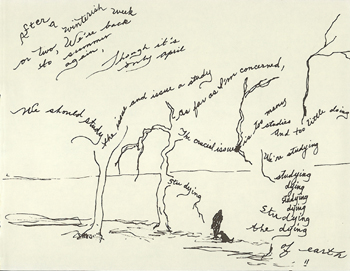 After a winterish week
or two, We're back
to summer
again,
Though it's
only April
We should study the issue and issue a study
As far as I'm concerned,
The crucial issue is too many
studies
And too little doing
We're studying
studying
dying
studying
dying
Studying
the dying
of earth
!!
Studying